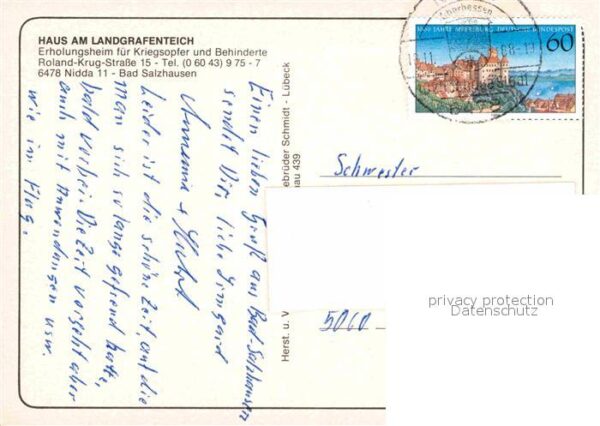 HAUS AM LANDGRAFENTEICH
Erholungsheim für Kriegsopfer und Behinderte
Roland-Krug-Straße 15 - Tel. (0 60 43) 9 75 - 7
6478 Nidda 11 - Bad Salzhausen
Einen lieben Gruß aus Bad-Salzhausen
sendet Dir, liebe Irmgard
Leider ist die schöne Zeit, auf die
man sich so lange gefreut hatte,
bald vorbei. Die Zeit vergeht aber
auch mit Anwendungen usw.
wie im Flug.
Herst. u. V
ebrüder Schmidt - Lübeck
au 439
1000 JAHRE MEERSBURG DEUTSCHE BUNDESPOST
60
Oberhessen
Schwester
5060
privacy protection
Datenschutz